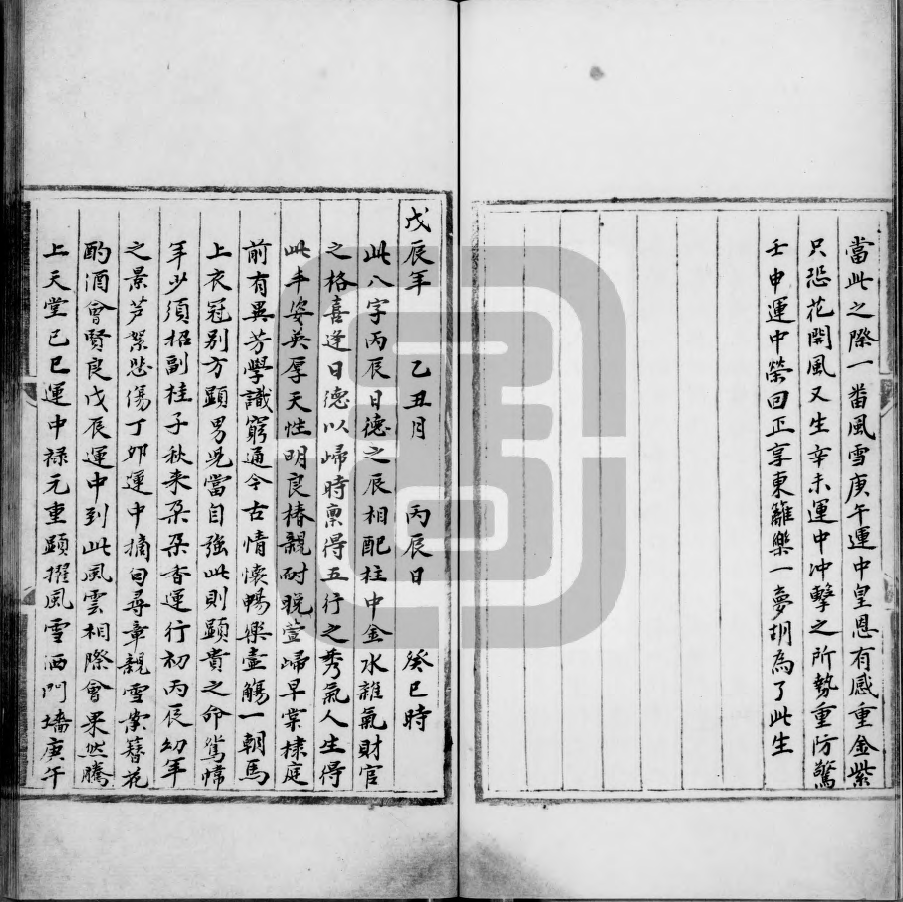 當此之際一畨風雪庚午運中皇恩有感重金紫
只恐花開風又生辛未運中冲擊之所勢重防驚
壬申運中榮回正享東籬樂一夢胡為了此生
戊辰年 乙丑月 丙辰日 癸巳時
此八字丙辰日德之辰相配柱中金水雜氣財官
之格喜逢日德以歸時稟得五行之秀氣人生得
此丰姿英厚天性明良椿親耐晚萱歸早棠棣庭
前有異芳學識窮通今古情懷暢樂壺觴一朝馬
上衣冠别方顕男児當自強此則顕貴之命鴛幃
年少須招副桂子秋来朶朶香運行初丙辰幼年
之景芦絮悲傷丁卯運中摘句尋章親雪案簪花
酌酒會賢良戊辰運中到此風雲相際會果然騰
上天堂己巳運中禄元重顕擢風雪洒門墻庚午